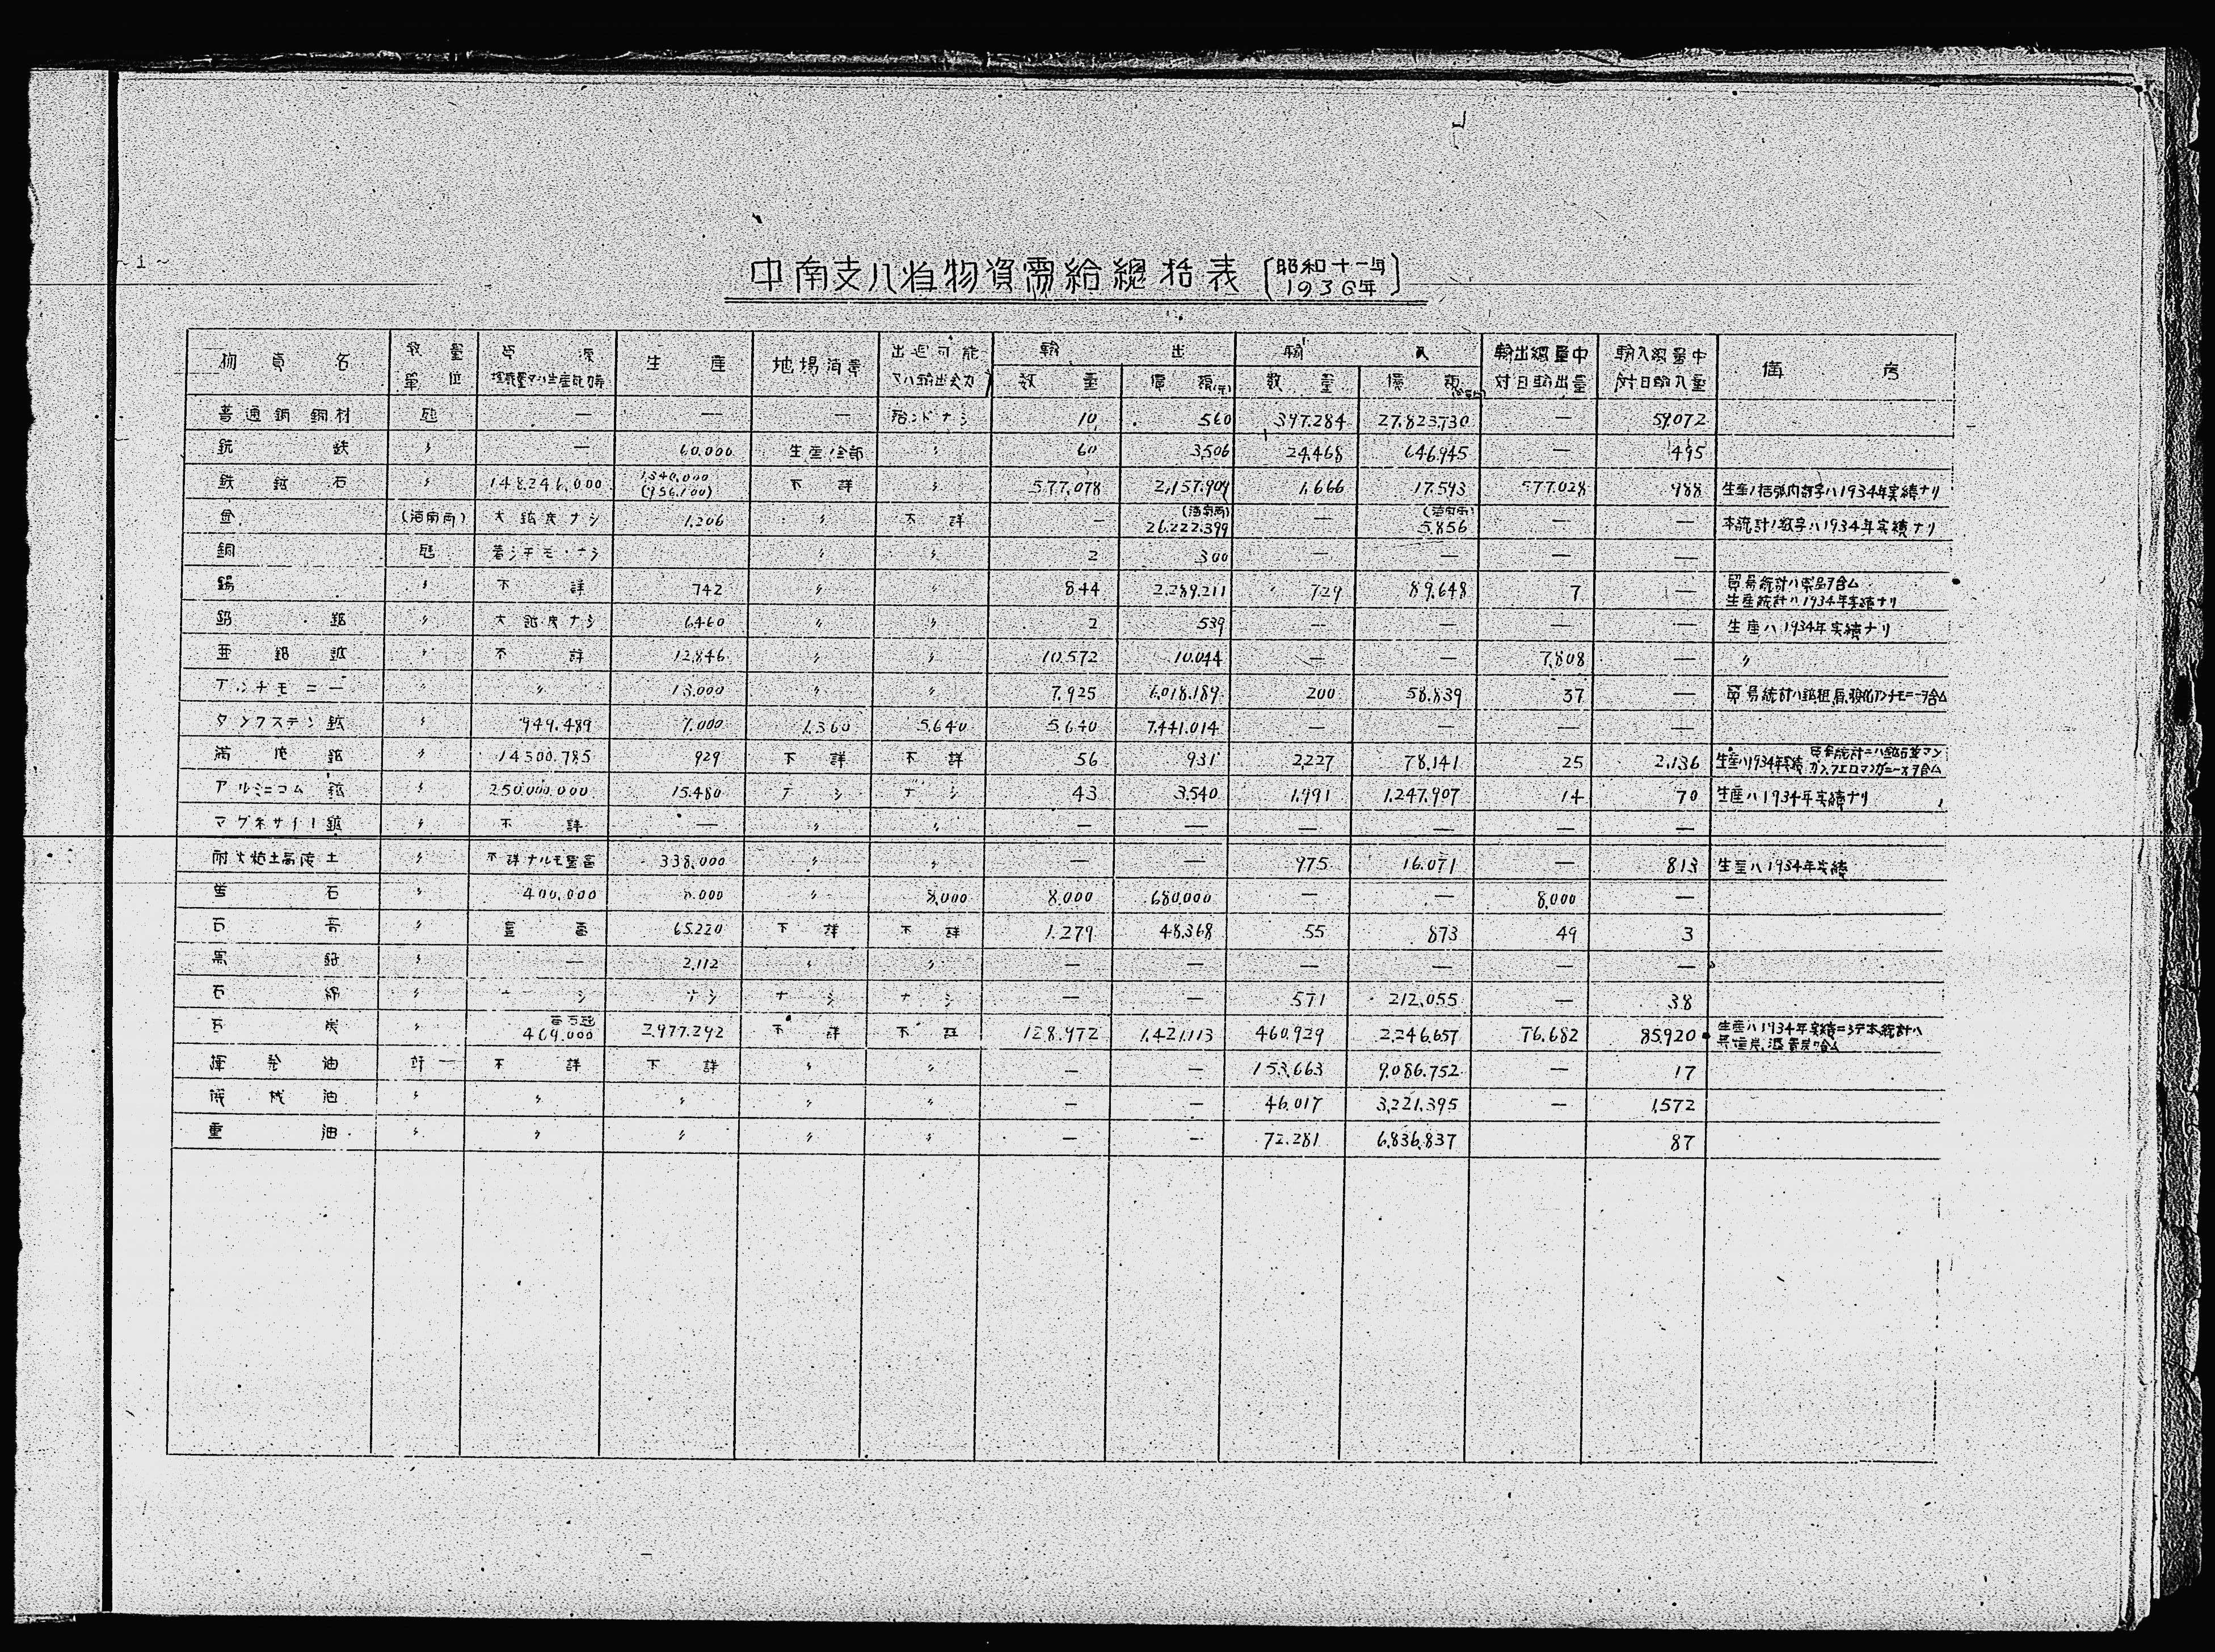 ~1~
中南支ハ省物資需給總括表〔昭和十一年 1936年〕
物資名 数量單位 資源 埋蔵量又ハ生産能力等 生産 地場消費 出廻可能又ハ輸出余力 輸出 数量 價額(元) 輸入 数量 價額 輸出總量中対日輸出量 輸入總量中対日輸入量 備考
普通鋼鋼材 瓲 — — — 殆ンドナシ 10 560 397.284 27.823.730 — 59.072
銑鉄 〃 — 60.000 生産ノ全部 〃 60 3.506 24.468 646.945 — 495
鉄鉱石 〃 148.246.000 1.340.000 (956.100) 不詳 〃 577.078 2.157.909 1.666 17.593 577.028 988 生産ノ括弧内数字ハ1934年実績ナリ
金 (海南両) 大鉱床ナシ 1.206 〃 不詳 — (海南両) 26.222.399 — (海南両) 5.856 — — 本統計ノ数字ハ1934年実績ナリ
銅 瓲 著シキモノナシ 〃 〃 2 300 — — — —
錫 〃 不詳 742 〃 〃 844 2.289.211 729 89.648 7 — 貿易統計ハ製品ヲ含ム
生産統計ハ1934年実績ナリ
鉛鉱 〃 大鉱床ナシ 6.460 〃 〃 2 539 — — — — 生産ハ1934年実績ナリ
亜鉛鉱 〃 不詳 12.846 〃 〃 10.572 10.044 — — 7.808 — 〃
アンチモニー 〃 〃 13.000 〃 〃 7.925 6.018.189 200 58.839 37 — 貿易統計ハ鉱粗層、硫化アンチモニーヲ含ム
タングステン鉱 〃 949.489 7.000 1.360 5.640 5.640 7.441.014 — — — —
満庵鉱 〃 14.300.785 929 不詳 不詳 56 931 2.227 78.141 25 2.136 生産ハ1934年実績 貿易統計ニハ鉱石並マン
ガン、フエロマンガニースヲ含ム
アルミニユム鉱 〃 250.000.000 15.480 ナシ ナシ 43 3.540 1.991 1.247.907 14 70 生産ハ1934年実績ナリ
マグネサイト鉱 〃 不詳 — 〃 〃 — — — — — —
耐火粘土高陵土 〃 不詳ナルモ豊富 338.000 〃 〃 — — 975 16.071 — 813 生産ハ1934年実績
蛍石 〃 400.000 8.000 〃 8.000 8.000 680.000 — — 8.000 —
石膏 〃 豊富 65.220 不詳 不詳 1.279 48.368 55 873 49 3
黒鉛 〃 — 2.112 〃 〃 — — — — — —
石綿 〃 ナシ ナシ ナシ ナシ — — 571 212.055 — 38
石炭 〃 百万瓲 469.000 2.977.292 不詳 不詳 128.972 1.421.113 460.929 2.246.657 76.682 85.920 生産ハ1934年実績ニシテ本統計ハ
揮発油 竏 不詳 不詳 〃 〃 — — 153.663 9.086.752 — 17
機械油 〃 〃 〃 〃 〃 — — 46.017 3.221.395 — 1.572
重油 〃 〃 〃 〃 〃 — — 72.281 6.836.837 87